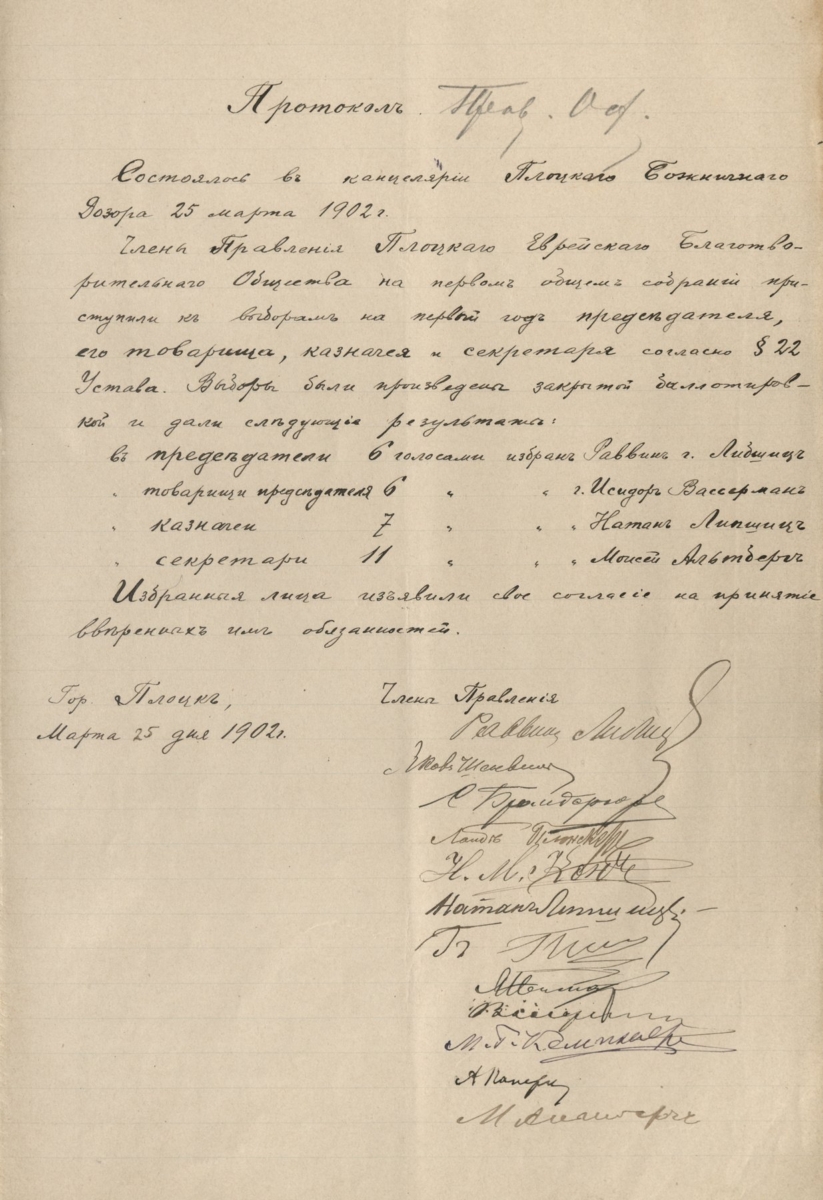 Протоколъ.
Состоялось въ канцеляріи Плоцкаго Божничнаго
Дозора 25 марта 1902 г.
Члены Правленія Плоцкаго Еврейскаго Благотво-
рительнаго Общества на первомъ общемъ собраніи при-
ступили къ выборамъ на первый годъ предсѣдателя,
его товарища, казначея и секретаря согласно § 22
Устава. Выборы были произведены закрытой баллотиров-
кой и дали слѣдующіе результаты:
въ предсѣдатели 6 голосами избранъ Раввинъ г. Либшицъ
" товарищи предсѣдателя 6 " " г. Исидоръ Вассерманъ
" казначеи 7 " " " Натанъ Липшицъ
" секретари 11 " " " Моисей Альтбергъ
Избранныя лица изъявили свое согласіе на принятіе
ввѣренныхъ имъ обязанностей.
Гор. Плоцкъ,
Марта 25 дня 1902 г.
Члены Правленія
Раввинъ
Н. М.
Натанъ Липшицъ
М.